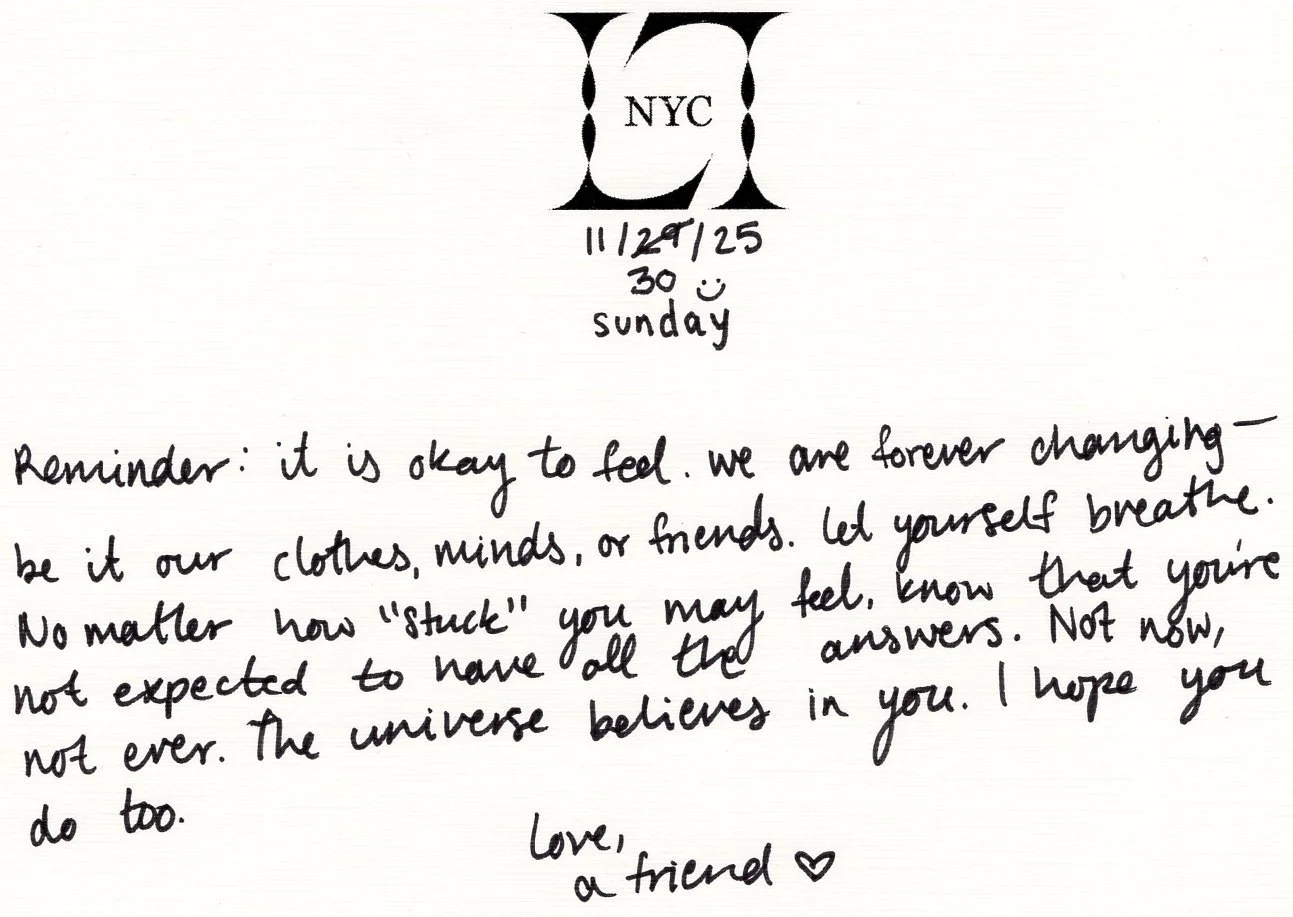 NYC
11/29/25
30 ☺
sunday
Reminder: it is okay to feel. we are forever changing—
be it our clothes, minds, or friends. let yourself breathe.
No matter how "stuck" you may feel, know that you're
not expected to have all the answers. Not now,
not ever. The universe believes in you. I hope you
do too.
love,
a friend ♡